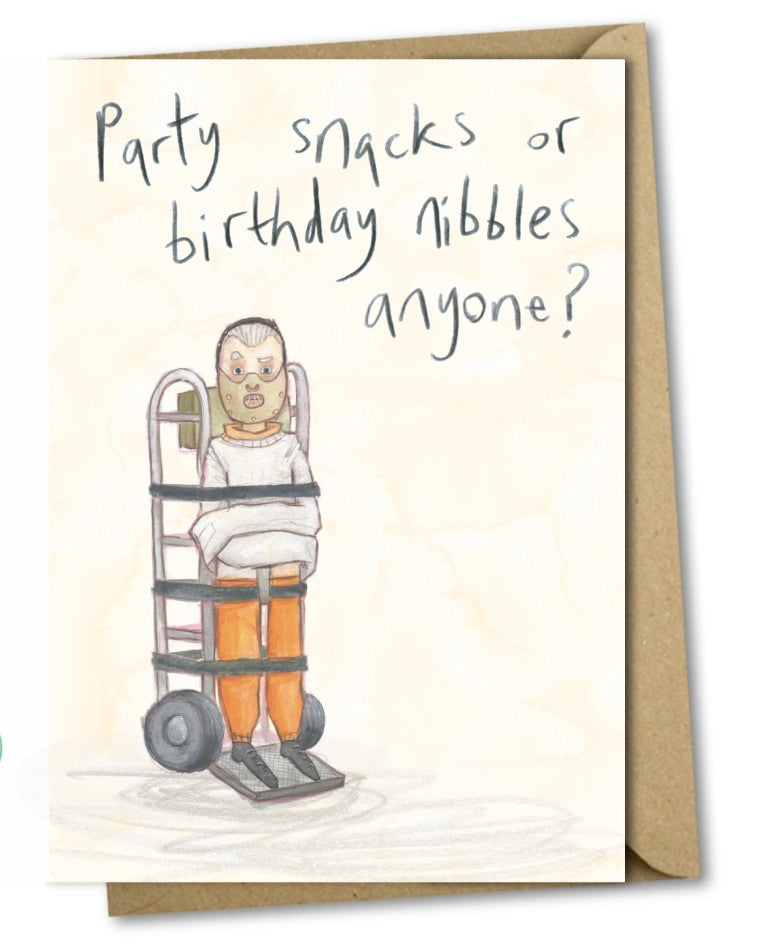 Party snacks or
birthday nibbles
anyone?